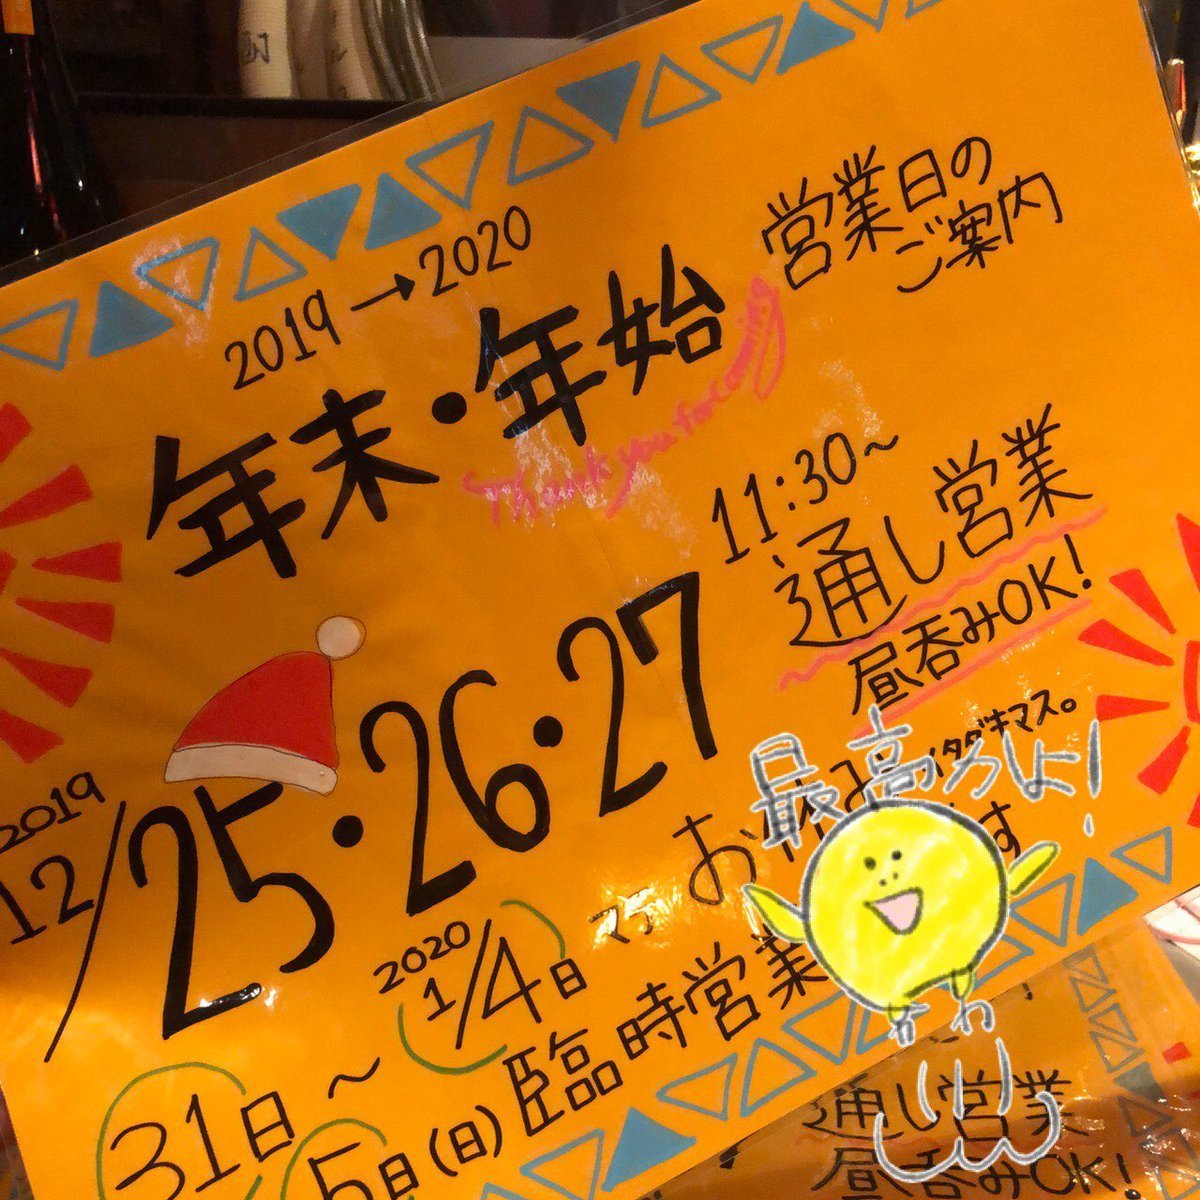 2019→2020
年末・年始
営業日の
ご案内
Thank you for coming
11:30~
通し営業
昼呑みOK!
2019
12/25・26・27
イタダキマス。
31日~
2020
1/4日マデ
お休み
ます
5日(日)臨時営業
最高かよ!
かわ
通し営業
昼呑みOK!